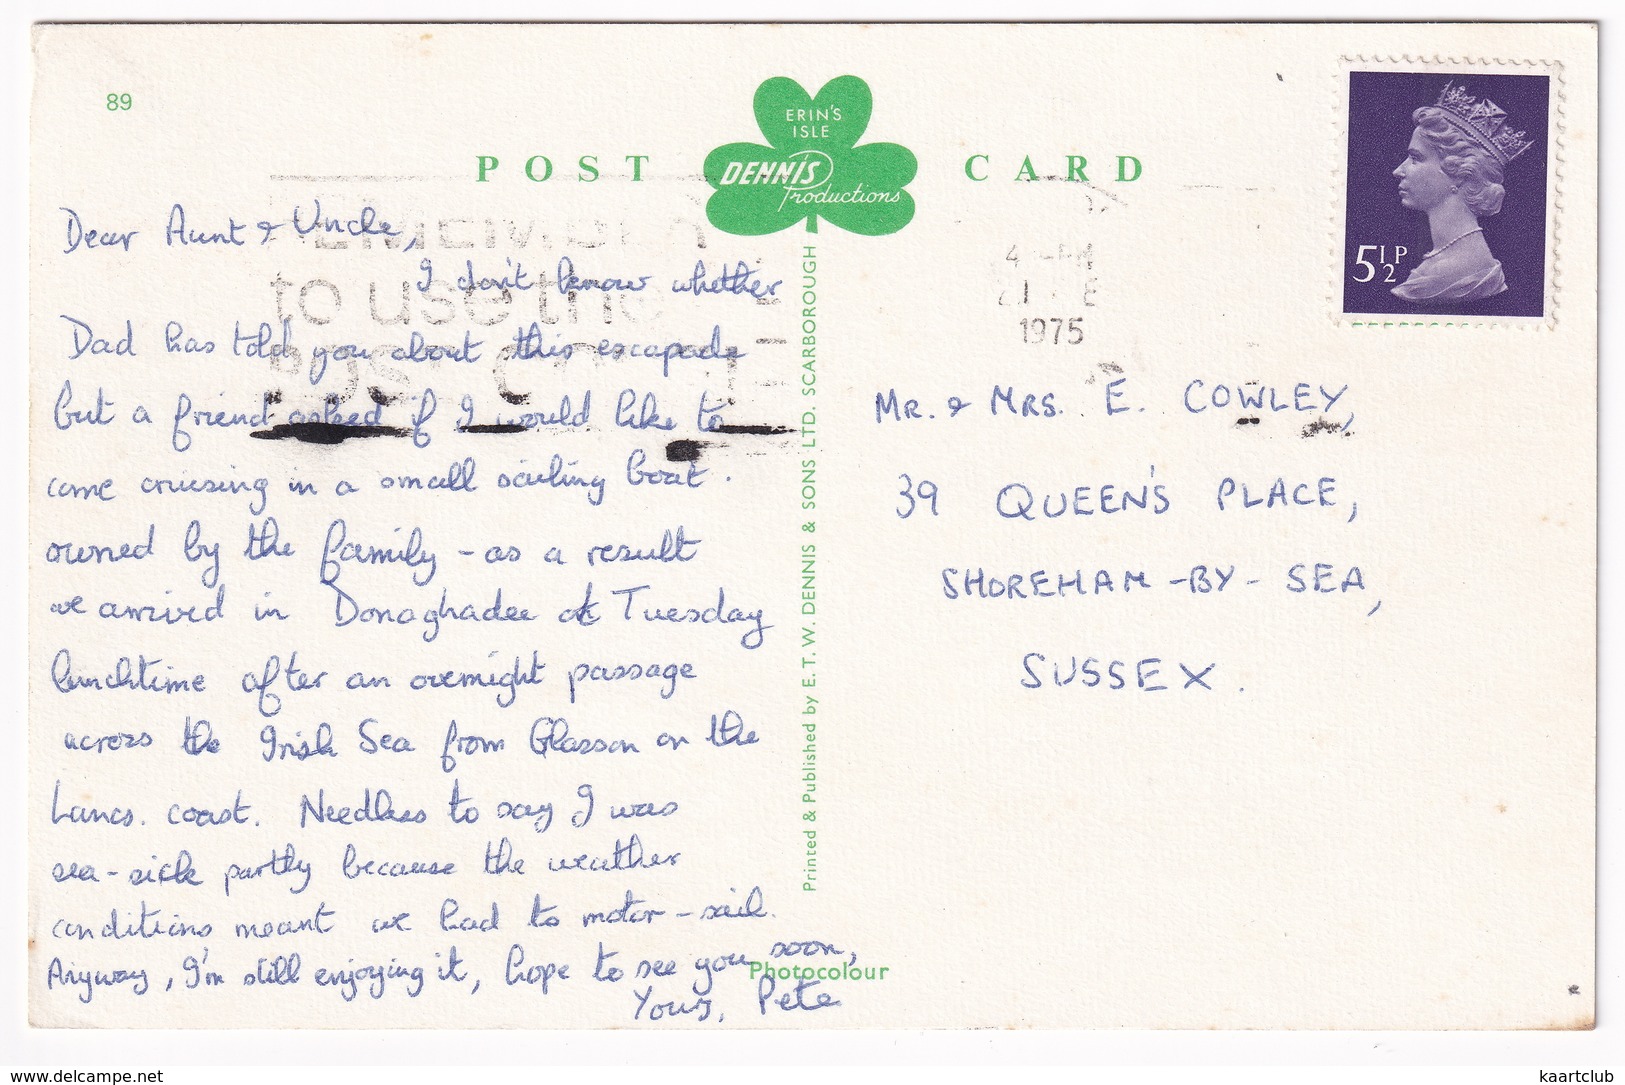 89
POST CARD
ERIN'S
ISLE
DENNIS
Productions
5½P
REMEMBER
to use the
POST CODE
4
1975
Dear Aunt & Uncle,
I don't know whether
Dad has told you about this escapade
but a friend asked if I would like to
come cruising in a small sailing boat.
owned by the family - as a result
we arrived in Donaghadee at Tuesday
lunchtime after an overnight passage
across the Irish Sea from Glasson on the
Lancs. coast. Needless to say I was
sea-sick partly because the weather
conditions meant we had to motor-sail.
Anyway, I'm still enjoying it, hope to see you soon,
Yours, Pete
Printed & Published by E. T. W. DENNIS & SONS LTD. SCARBOROUGH
Photocolour
MR. & MRS. E. COWLEY,
39 QUEEN'S PLACE,
SHOREHAM-BY-SEA,
SUSSEX.
https://www.delcampe.net
kaartclub